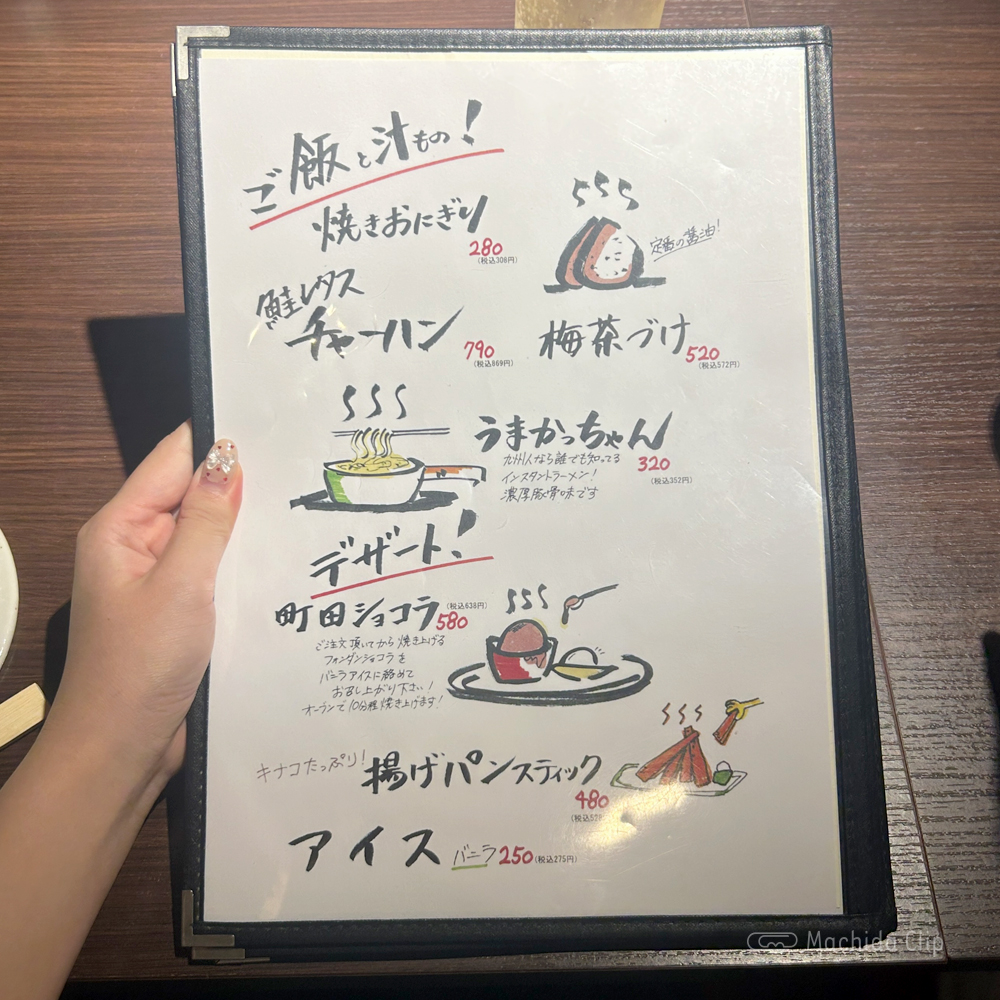 ご飯と汁もの!
焼きおにぎり
280
(税込308円)
定番の醤油!
鮭レタス
チャーハン
790
(税込869円)
梅茶づけ
520
(税込572円)
うまかっちゃん
320
(税込352円)
九州人なら誰でも知ってる
インスタントラーメン!
濃厚豚骨味です
デザート!
町田ショコラ
(税込638円)
580
ご注文頂いてから焼き上げる
フォンダンショコラを
バニラアイスに絡めて
お召し上がり下さい!
オーブンで10分程焼き上げます!
キナコたっぷり!
揚げパンスティック
480
(税込528
アイス バニラ 250 (税込275円)
Machida Clip